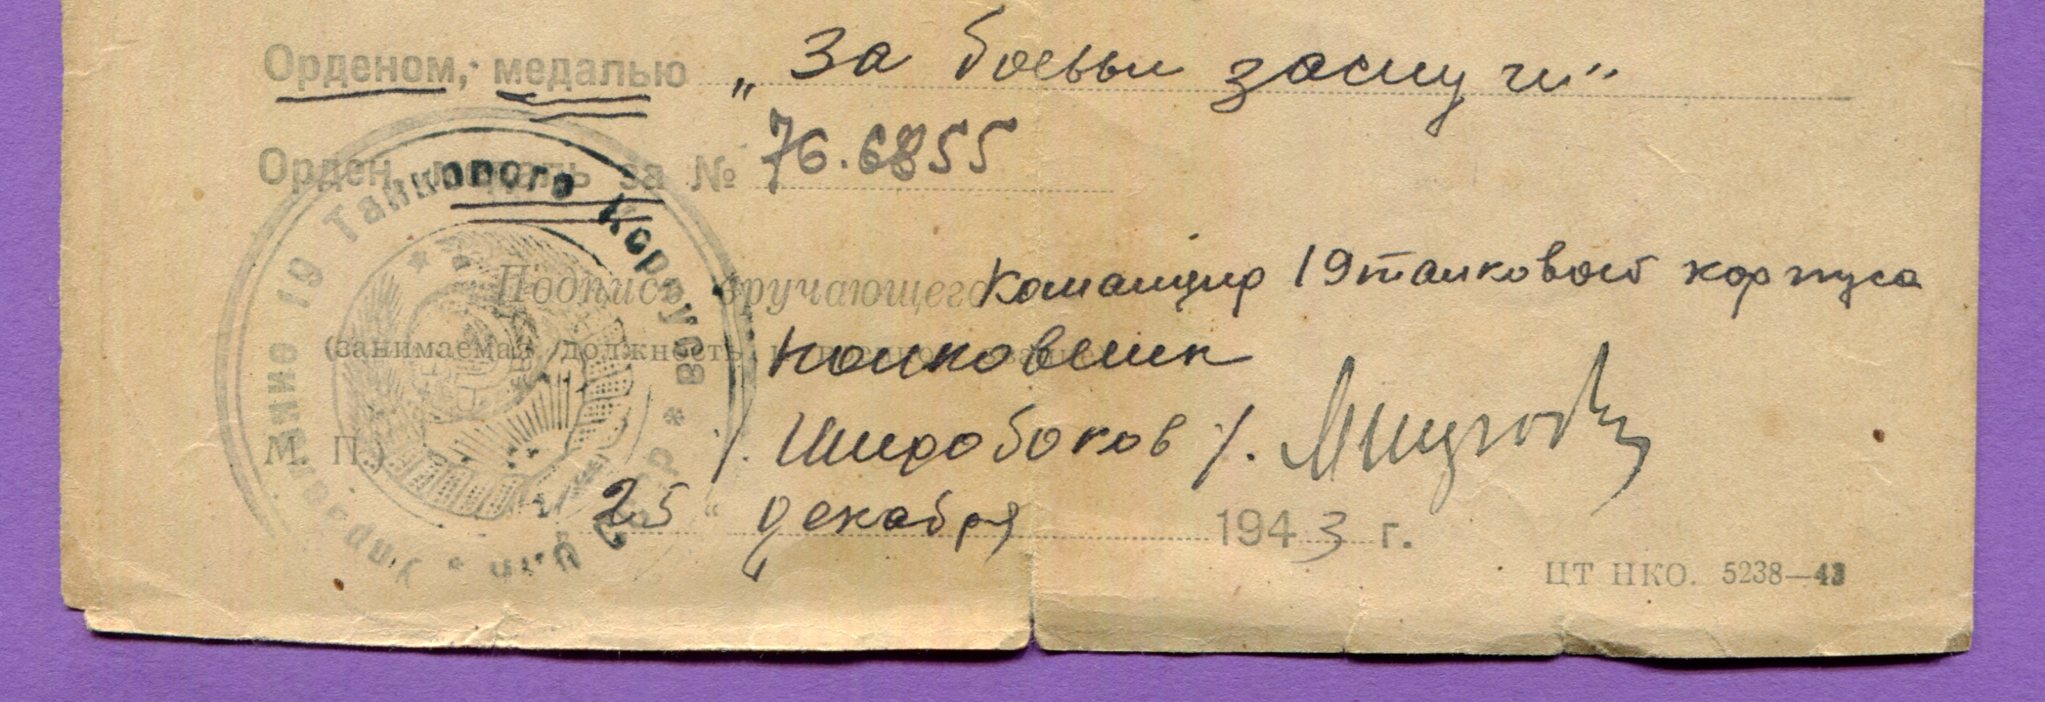 Орденом, медалью „За боевые заслуги“
Орден, медаль за № 76.6855
Подпись вручающего Командир 19 танкового корпуса
(занимаемая должность полковник
/. Широбоков /.
М. П.
25 “ декабря 1943 г.
ЦТ НКО. 5238—43
Управление 19 Танкового Корпуса *